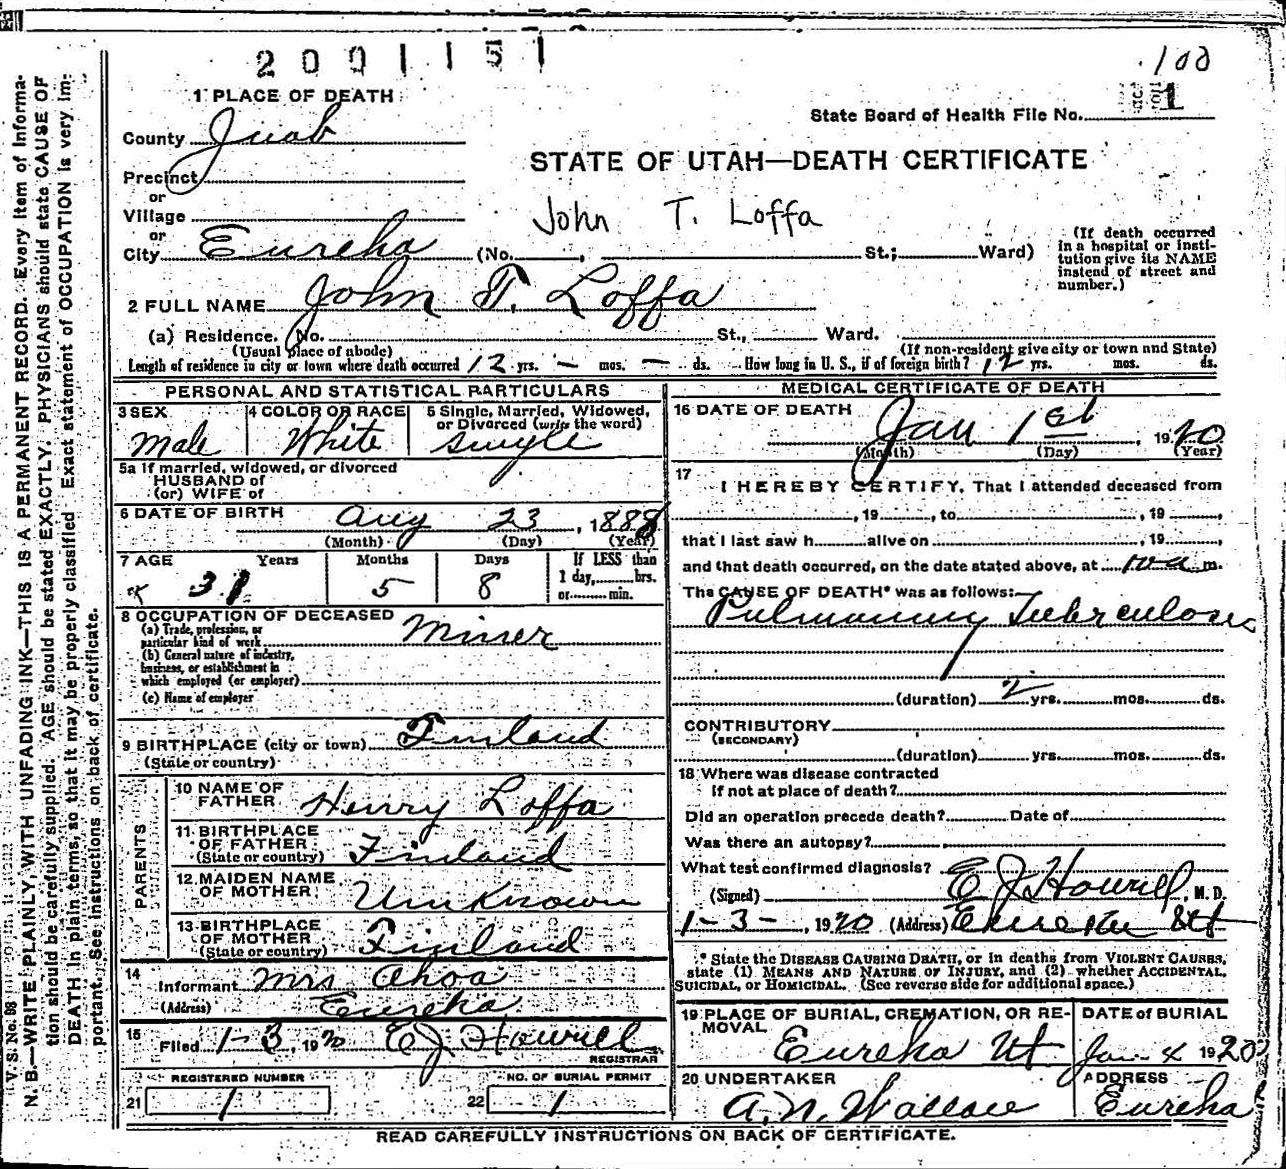 2001151
.100
1 PLACE OF DEATH
State Board of Health File No. 1
County Juab
STATE OF UTAH—DEATH CERTIFICATE
Precinct
or
Village
John T. Loffa
or
City Eureka (No. , St.; Ward)
(If death occurred
in a hospital or insti-
tution give its NAME
instead of street and
number.)
2 FULL NAME John T. Loffa
(a) Residence. No. St., Ward.
(Usual place of abode) (If non-resident give city or town and State)
Length of residence in city or town where death occurred 12 yrs. – mos. – ds. How long in U. S., if of foreign birth? 12 yrs. mos. ds.
PERSONAL AND STATISTICAL PARTICULARS
3 SEX 4 COLOR OR RACE 5 Single, Married, Widowed,
or Divorced (write the word)
Male White Single
5a If married, widowed, or divorced
HUSBAND of
(or) WIFE of
6 DATE OF BIRTH Aug 23, 1888
(Month) (Day) (Year)
7 AGE Years Months Days If LESS than
1 day, hrs.
or min.
31 5 8
8 OCCUPATION OF DECEASED Miner
(a) Trade, profession, or
particular kind of work
(b) General nature of industry,
business, or establishment in
which employed (or employer)
(c) Name of employer
9 BIRTHPLACE (city or town) Finland
(State or country)
PARENTS
10 NAME OF
FATHER Henry Loffa
11 BIRTHPLACE
OF FATHER
(State or country) Finland
12 MAIDEN NAME
OF MOTHER Unknown
13 BIRTHPLACE
OF MOTHER
(State or country) Finland
14
Informant Mrs Ahoa
(Address) Eureka
15
Filed 1-3, 1920 E J Howell
REGISTRAR
REGISTERED NUMBER NO. OF BURIAL PERMIT
21 1 22 1
MEDICAL CERTIFICATE OF DEATH
16 DATE OF DEATH
Jan 1st, 1920
(Month) (Day) (Year)
17
I HEREBY CERTIFY, That I attended deceased from
, 19 , to , 19 ,
that I last saw h alive on , 19 ,
and that death occurred, on the date stated above, at 10 a m.
The CAUSE OF DEATH* was as follows:
Pulmonary Tuberculosis
(duration) 2 yrs. mos. ds.
CONTRIBUTORY
(SECONDARY)
(duration) yrs. mos. ds.
18 Where was disease contracted
if not at place of death?
Did an operation precede death? Date of
Was there an autopsy?
What test confirmed diagnosis?
(Signed) E J Howell, M. D.
1-3-, 1920 (Address) Eureka Ut
* State the DISEASE CAUSING DEATH, or in deaths from VIOLENT CAUSES,
state (1) MEANS AND NATURE OF INJURY, and (2) whether ACCIDENTAL,
SUICIDAL, or HOMICIDAL. (See reverse side for additional space.)
19 PLACE OF BURIAL, CREMATION, OR RE-
MOVAL
Eureka Ut
DATE of BURIAL
Jan 4 1920
20 UNDERTAKER
A. N. Wallace
ADDRESS
Eureka
READ CAREFULLY INSTRUCTIONS ON BACK OF CERTIFICATE.
V. S. No. 98
N. B.—WRITE PLAINLY, WITH UNFADING INK—THIS IS A PERMANENT RECORD. Every item of informa-
tion should be carefully supplied. AGE should be stated EXACTLY. PHYSICIANS should state CAUSE OF
DEATH in plain terms, so that it may be properly classified. Exact statement of OCCUPATION is very im-
portant. See instructions on back of certificate.